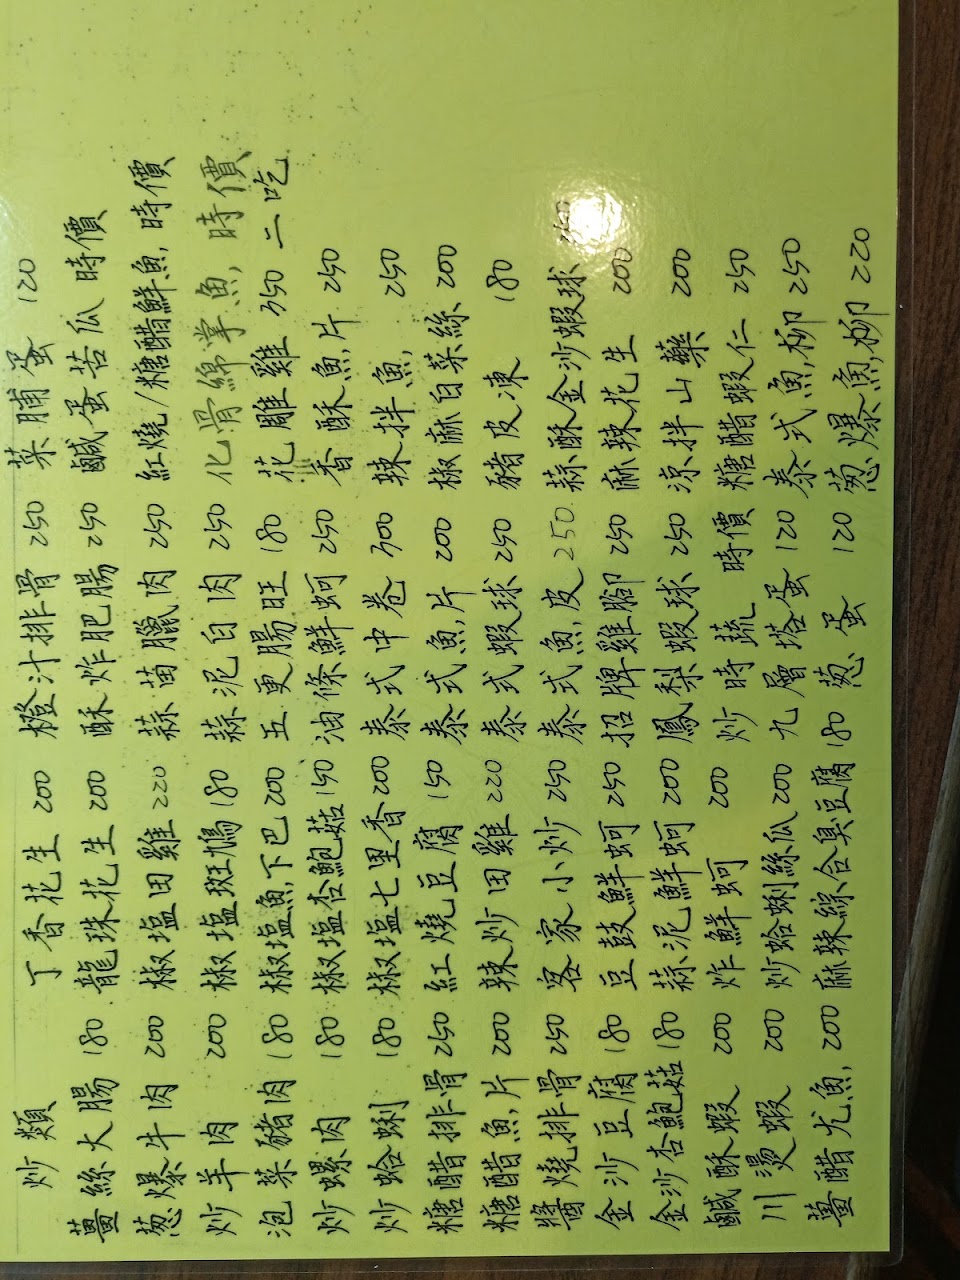 炒類 丁香花生 200 橙汁排骨 250 菜脯蛋 120
薑絲大腸 180 龍珠花生 200 酥炸肥腸 250 鹹蛋苦瓜 時價
葱爆牛肉 200 椒塩田雞 220 蒜苗臘肉 250 紅燒/糖醋鮮魚,時價
炒羊肉 200 椒塩斑鳩 180 蒜泥白肉 250 化骨綿掌魚,時價
泡菜豬肉 180 椒塩魚下巴 200 五更腸旺 180 花雕雞 350 二吃
炒螺肉 180 椒塩杏鮑菇 150 油條鮮蚵 250 香酥魚片 250
炒蛤蜊 180 椒塩七里香 200 泰式中卷 300 辣拌魚 250
糖醋排骨 250 紅燒豆腐 150 泰式魚片 200 椒麻白菜絲 200
糖醋魚片 200 辣炒田雞 220 泰式蝦球 250 豬皮凍 180
醬燒排骨 250 客家小炒 250 泰式魚皮 250 蒜酥金沙蝦球
金沙豆腐 180 豆鼓鮮蚵 250 招牌雞腳 250 麻辣花生 200
金沙杏鮑菇 180 蒜泥鮮蚵 200 鳳梨蝦球 250 涼拌山藥 200
鹹酥蝦 200 炸鮮蚵 200 炒時蔬 時價 糖醋蝦仁 250
川燙蝦 200 炒蛤蜊絲瓜 200 九層塔蛋 120 泰式魚柳 250
薑醋尤魚 200 麻辣綜合臭豆腐 180 葱蛋 120 葱爆魚柳 220